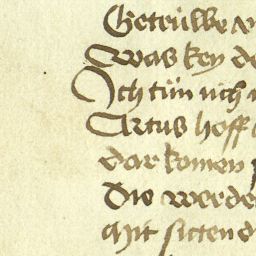 Getrüwe
Was key de
Ich tün nich
Artus hoff
dar komen
Die werde
Mit sitten d